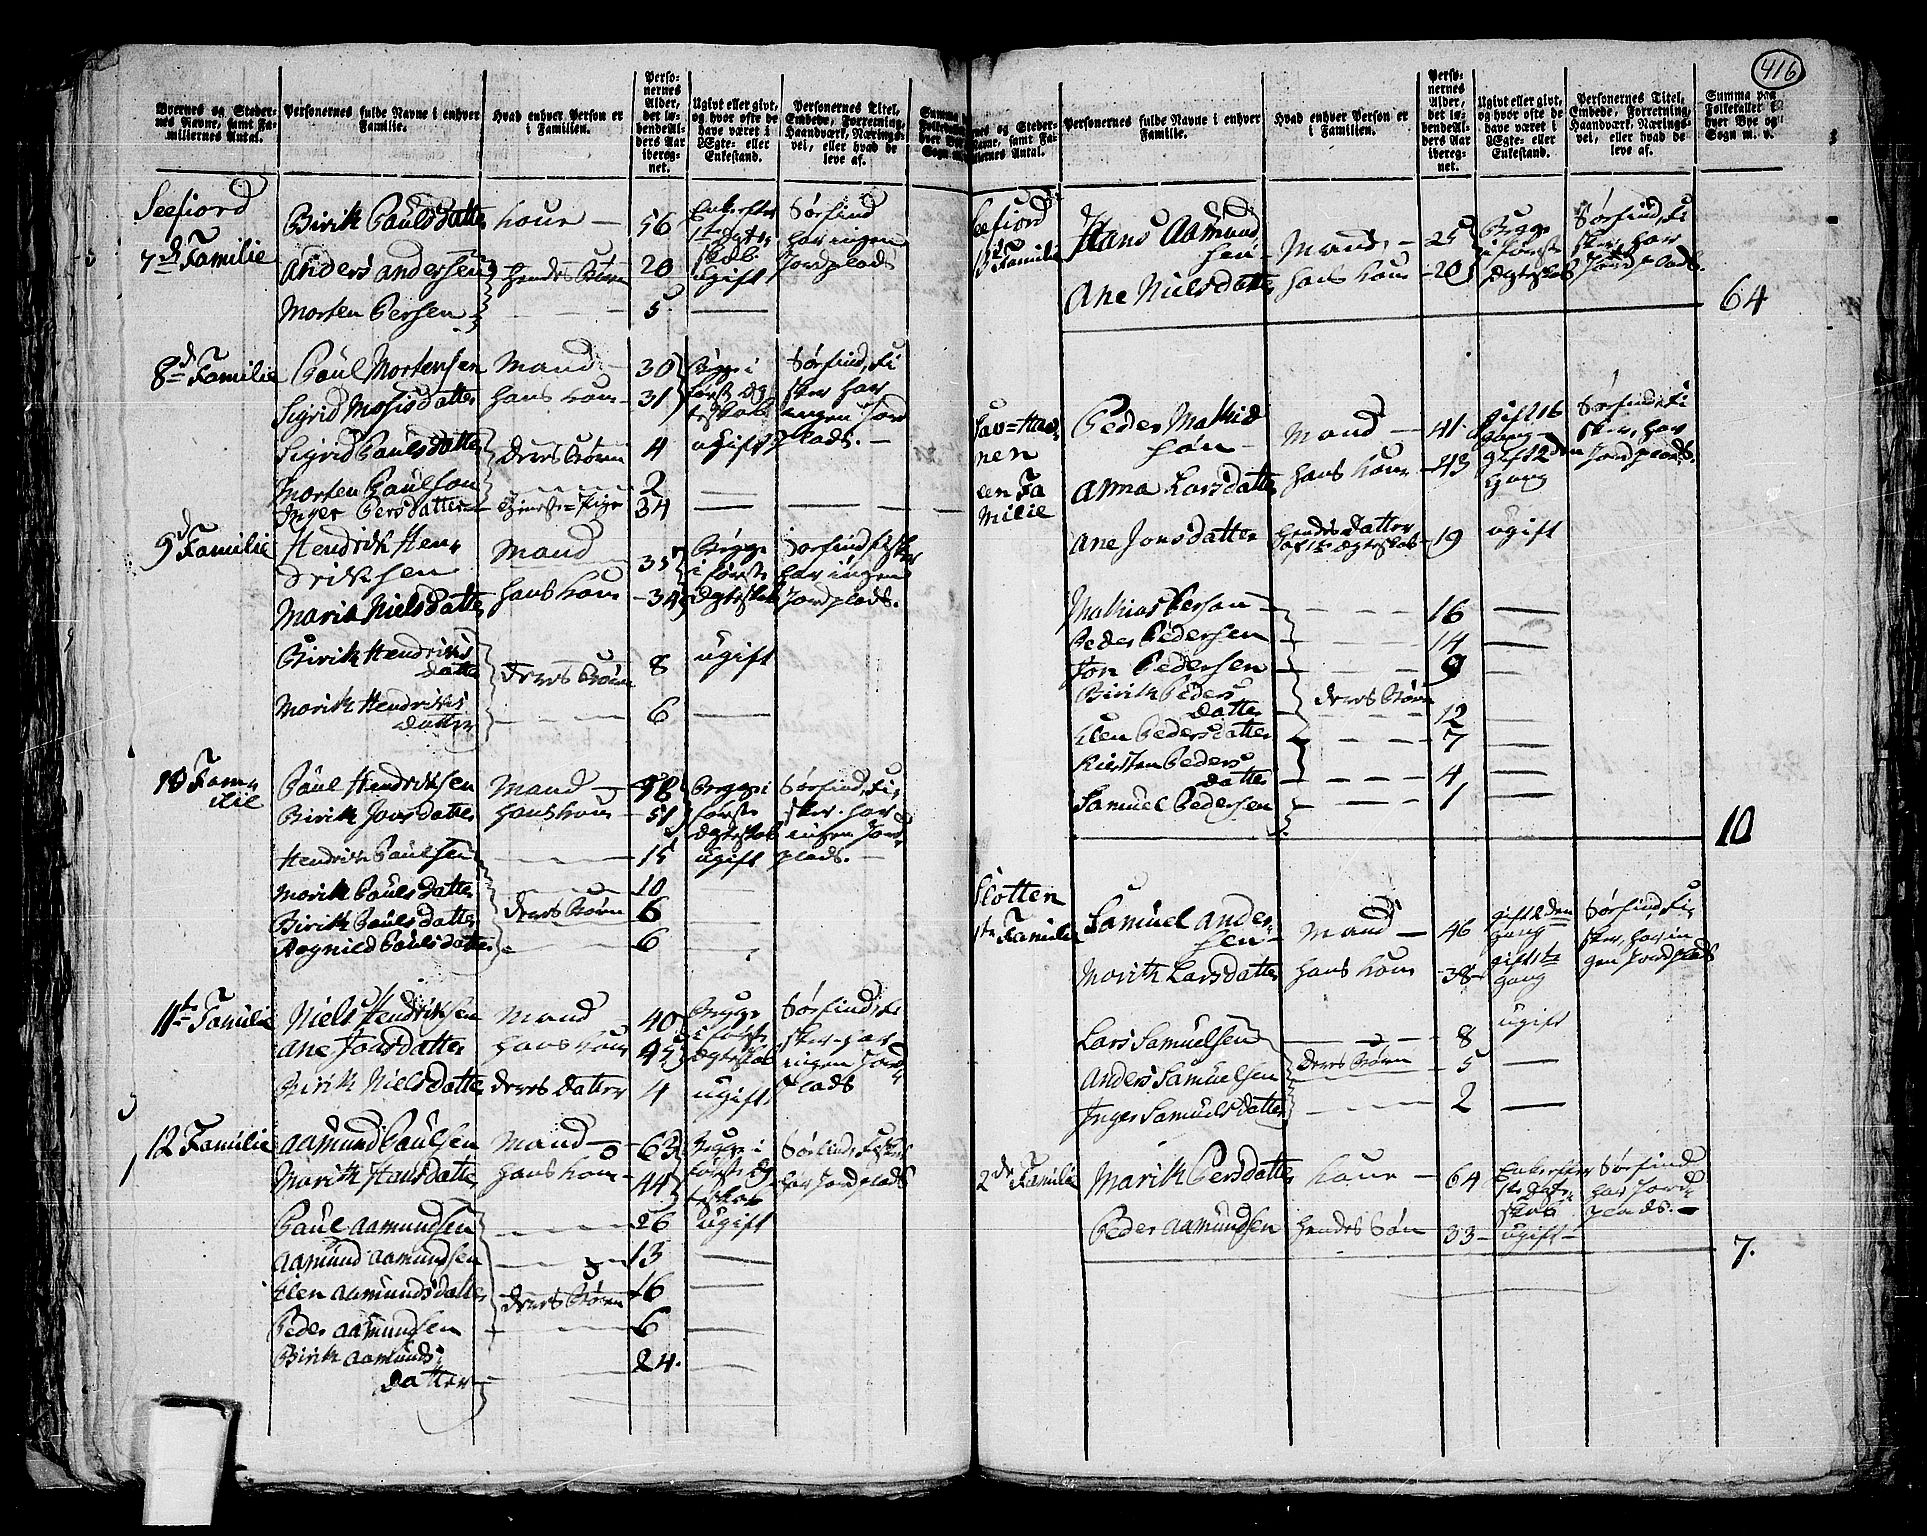 416
Byernes og Steder-
nes Navne, samt Fa-
miliernes Antal.
Personernes fulde Navne i enhver
Familie.
Hvad enhver Person er
i Familien.
Perso-
nernes
Alder,
det lø-
bende Al-
ders Aar
ibereg-
net.
Ugivt eller givt,
og hvor ofte de
have været i
Ægte- eller
Enkestand.
Personernes Titel,
Embede, Forretning,
Haandværk, Nærings-
vei, eller hvad de
leve af.
Seefiord
7de Familie
Birik Paulsdatter Kone — 56 Enke efter 1te Ægteskab Sørfind har ingen Jordplads
Anders Andersen hendes Børn 20 ugift
Morten Persen — 5 —
8de Familie Paul Mortensen Mand — 30 Begge i første Ægteskab Sørfind, Fisker har ingen Jordplads. —
Sigrid Mosisdatter hans Kone — 31
Sigrid Paulsdatter deres Børn 4 ugift
Morten Paulson — 2 —
Inger Persdatter — Tieneste-Pige 34 — — —
9de Familie Hendrik Hendriksen Mand 35 Begge i første Ægteskab Sørfind, Fisker har ingen Jordplads.
Maria Nielsdatter hans Kone — 34
Birik Hendriksdatter deres Børn 8 ugift
Marith Hendriksdatter — 6 —
10 Familie Paul Hendriksen Mand — 48 Begge i første Ægteskab Sørfind, Fisker har ingen Jordplads. —
Birik Jonsdatter hans Kone — 51
Hendrik Paulsen — 15 ugift
Marith Paulsdatter — 10 —
Birik Paulsdatter deres Børn 6 —
Ragnild Paulsdatter — 6
11te Familie Niels Hendriksen Mand 40 Begge i første Ægteskab Sørfind, Fisker har ingen Jordplads
Ane Jonsdatter hans Kone 45
Birik Nielsdatter deres Datter 4 ugift
12 Familie Aamund Paulsen Mand — 63 Begge i første Ægteskab Sørfind, Fisker har Jordplads
Marith Hansdatter hans Kone — 44
Paul Aamundsen — 26 ugift
Aamund Aamundsen — 13 —
Elen Aamundsdatter deres Børn 16 —
Peder Aamundsen — 6 —
Birik Aamundsdatter — 24. —
Personernes fulde Navne i enhver
Familie.
Hvad enhver Person er
i Familien.
Perso-
nernes
Alder,
det lø-
bende Al-
ders Aar
ibereg-
net.
Ugivt eller givt,
og hvor ofte de
have været i
Ægte- eller
Enkestand.
Personernes Titel,
Embede, Forretning,
Haandværk, Nærings-
vei, eller hvad de
leve af.
Summa paa
Folketallet i
hver Bye og
Sogn m. v.
Seefiord
13de Familie Hans Aamundsen Mand — 25 Begge i første Ægteskab Sørfind, Fisker, har Jordplads.
Ane Nielsdatter hans Kone — 20
64
een Familie
Peder Mathisøn Mand — 41 Sørfind, Fisker, har Jordplads.
Anna Larsdatter hans Kone — 43 gift 2den Gang
Ane Jonsdatter hendes Datter af 1te Ægteskab — 19 ugift
Mathias Persøn — 16 —
Peder Pedersen — 14 —
Jon Pedersen — 9 —
Birik Pedersdatter deres Børn 12 —
Elen Pedersdatter — 7 —
Kiersten Pedersdatter — 4 —
Samuel Pedersen — 1 —
10
Slotten
1te Familie Samuel Andersen — Mand — 46 gift 2den Gang Sørfind, Fisker, har ingen Jordplads
Marith Larsdatter hans Kone 38 gift 1te Gang
Lars Samuelsen — 8 ugift
Anders Samuelsen deres Børn 5 —
Inger Samuelsdatter — 2 —
2de Familie Marith Persdatter Kone — 64 Enke efter 1te Ægteskab Sørfind har Jordplads. —
Peder Aamundsen hendes Søn 33 — ugift —
7.